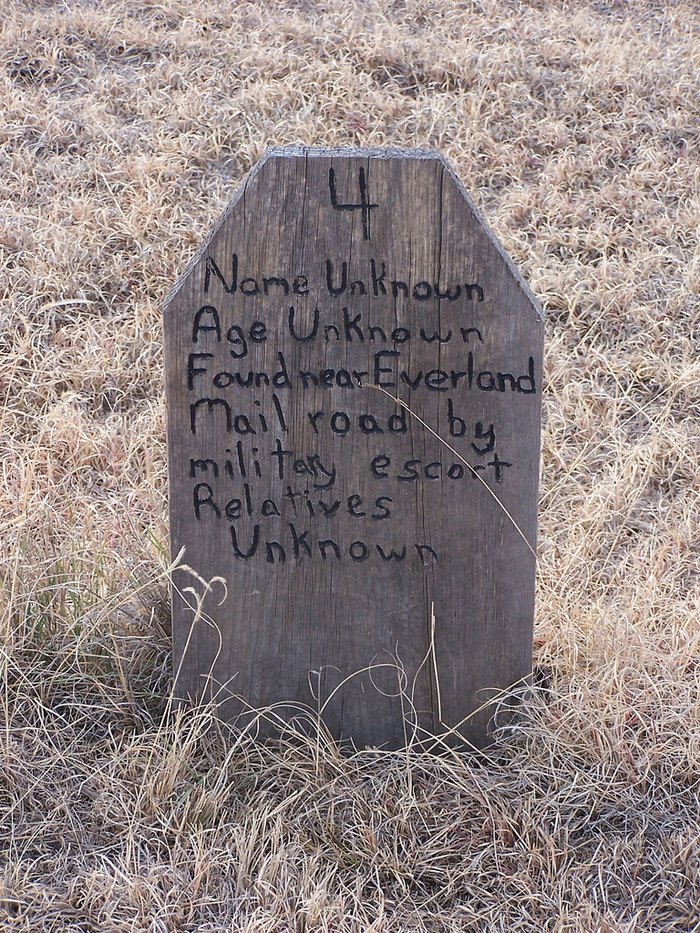 4
Name Unknown
Age Unknown
Found near Everland
Mail road by
military escort
Relatives
Unknown